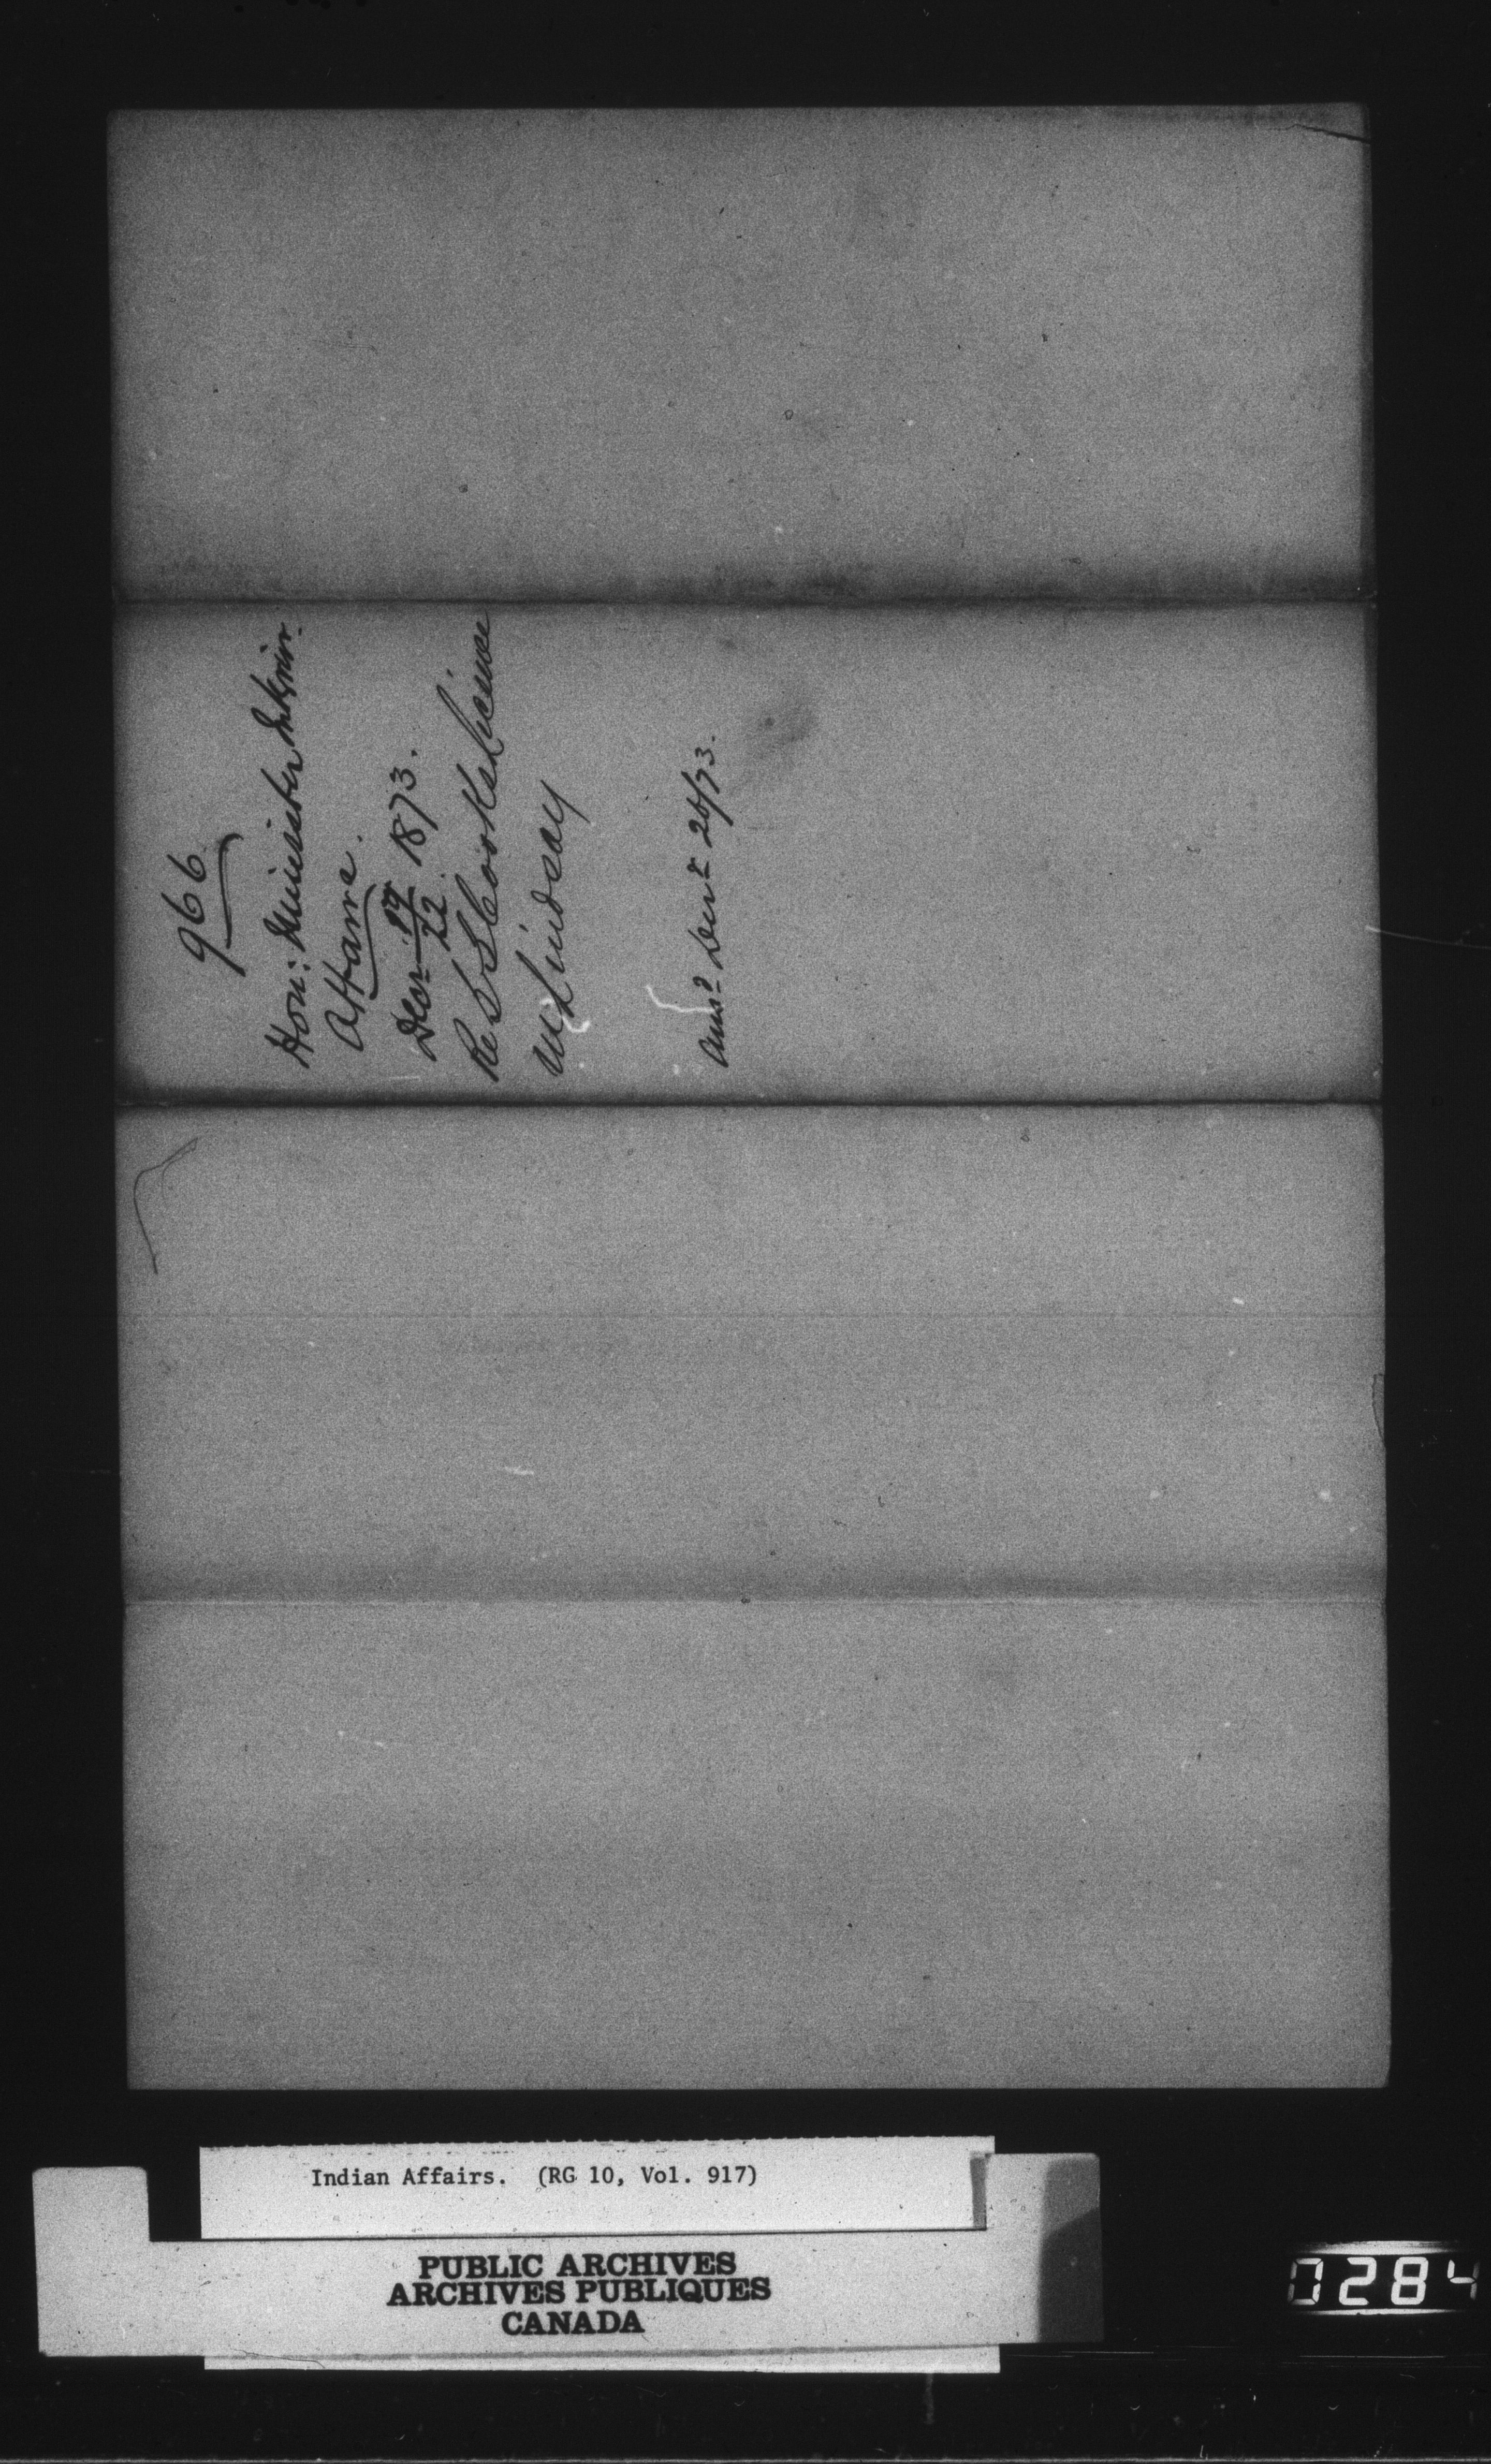 966
Hon: Minister Interior
Ottawa.
Decr 19/22 1873.
Re S S Cooks License
in Lindsay
Ansd Decr 20/73.
Indian Affairs. (RG 10, Vol. 917)
PUBLIC ARCHIVES
ARCHIVES PUBLIQUES
CANADA
0284